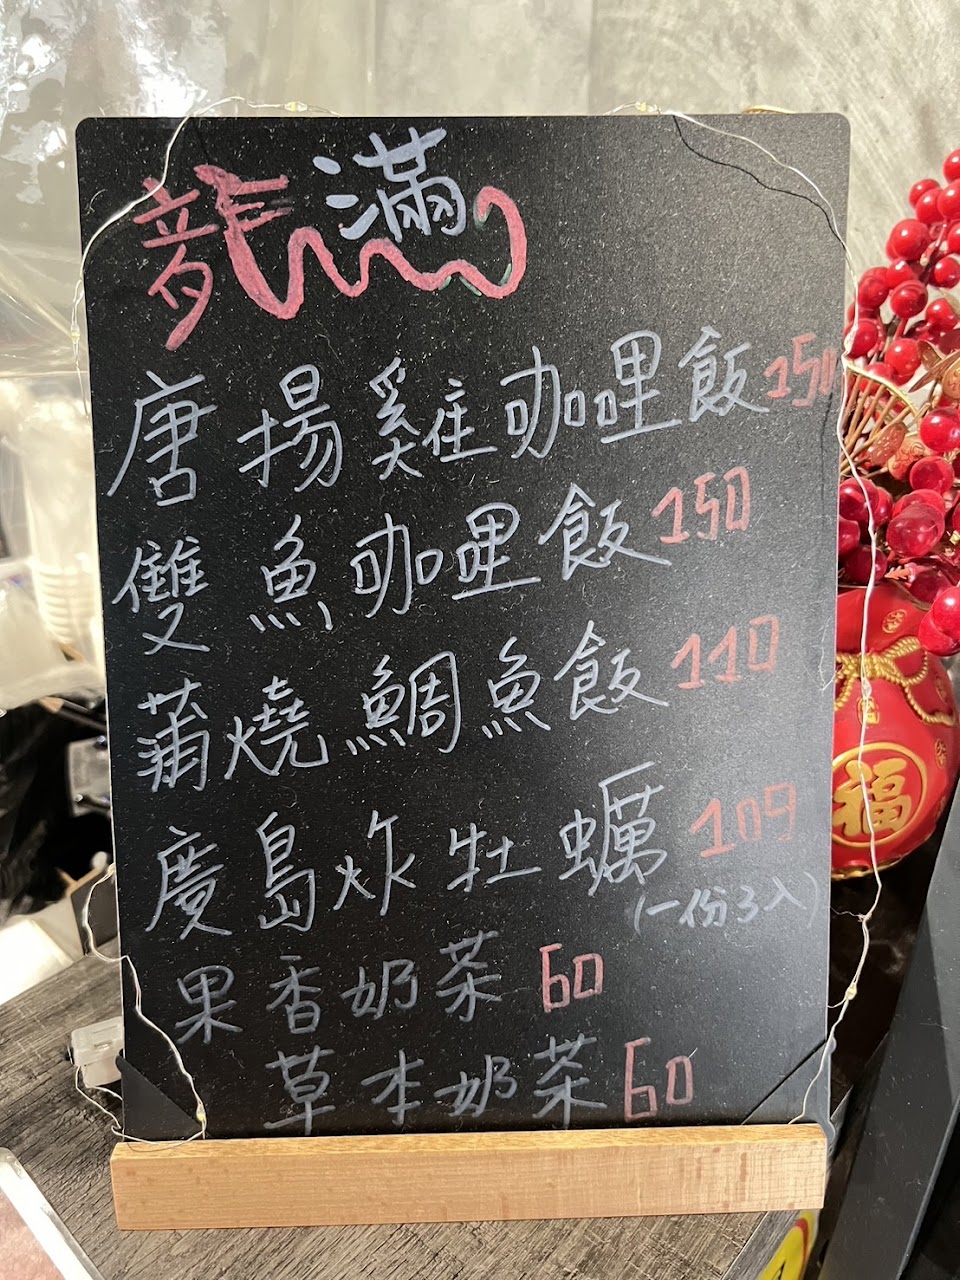 龍滿
唐揚雞咖哩飯150
雙魚咖哩飯150
蒲燒鯛魚飯110
廣島炸牡蠣109
(一份3入)
果香奶茶60
草本奶茶60
福